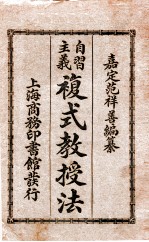 嘉定范祥善編纂
自習主義
複式教授法
上海商務印書館發行